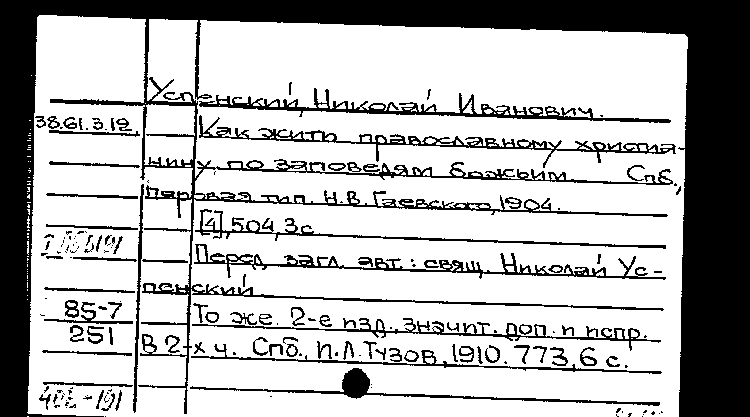 Успенский, Николай Иванович.
38.61.3.12. Как жить православному христиа-
нину по заповедям божьим. Спб.,
паровая тип. Н.В. Гаевского, 1904.
[4], 504, 3 с
Перед загл. авт.: свящ. Николай Ус-
пенский.
85-7 То же. 2-е изд., значит. доп. и испр.
251 В 2-х ч. Спб., И.Л. Тузов, 1910. 773, 6 с.